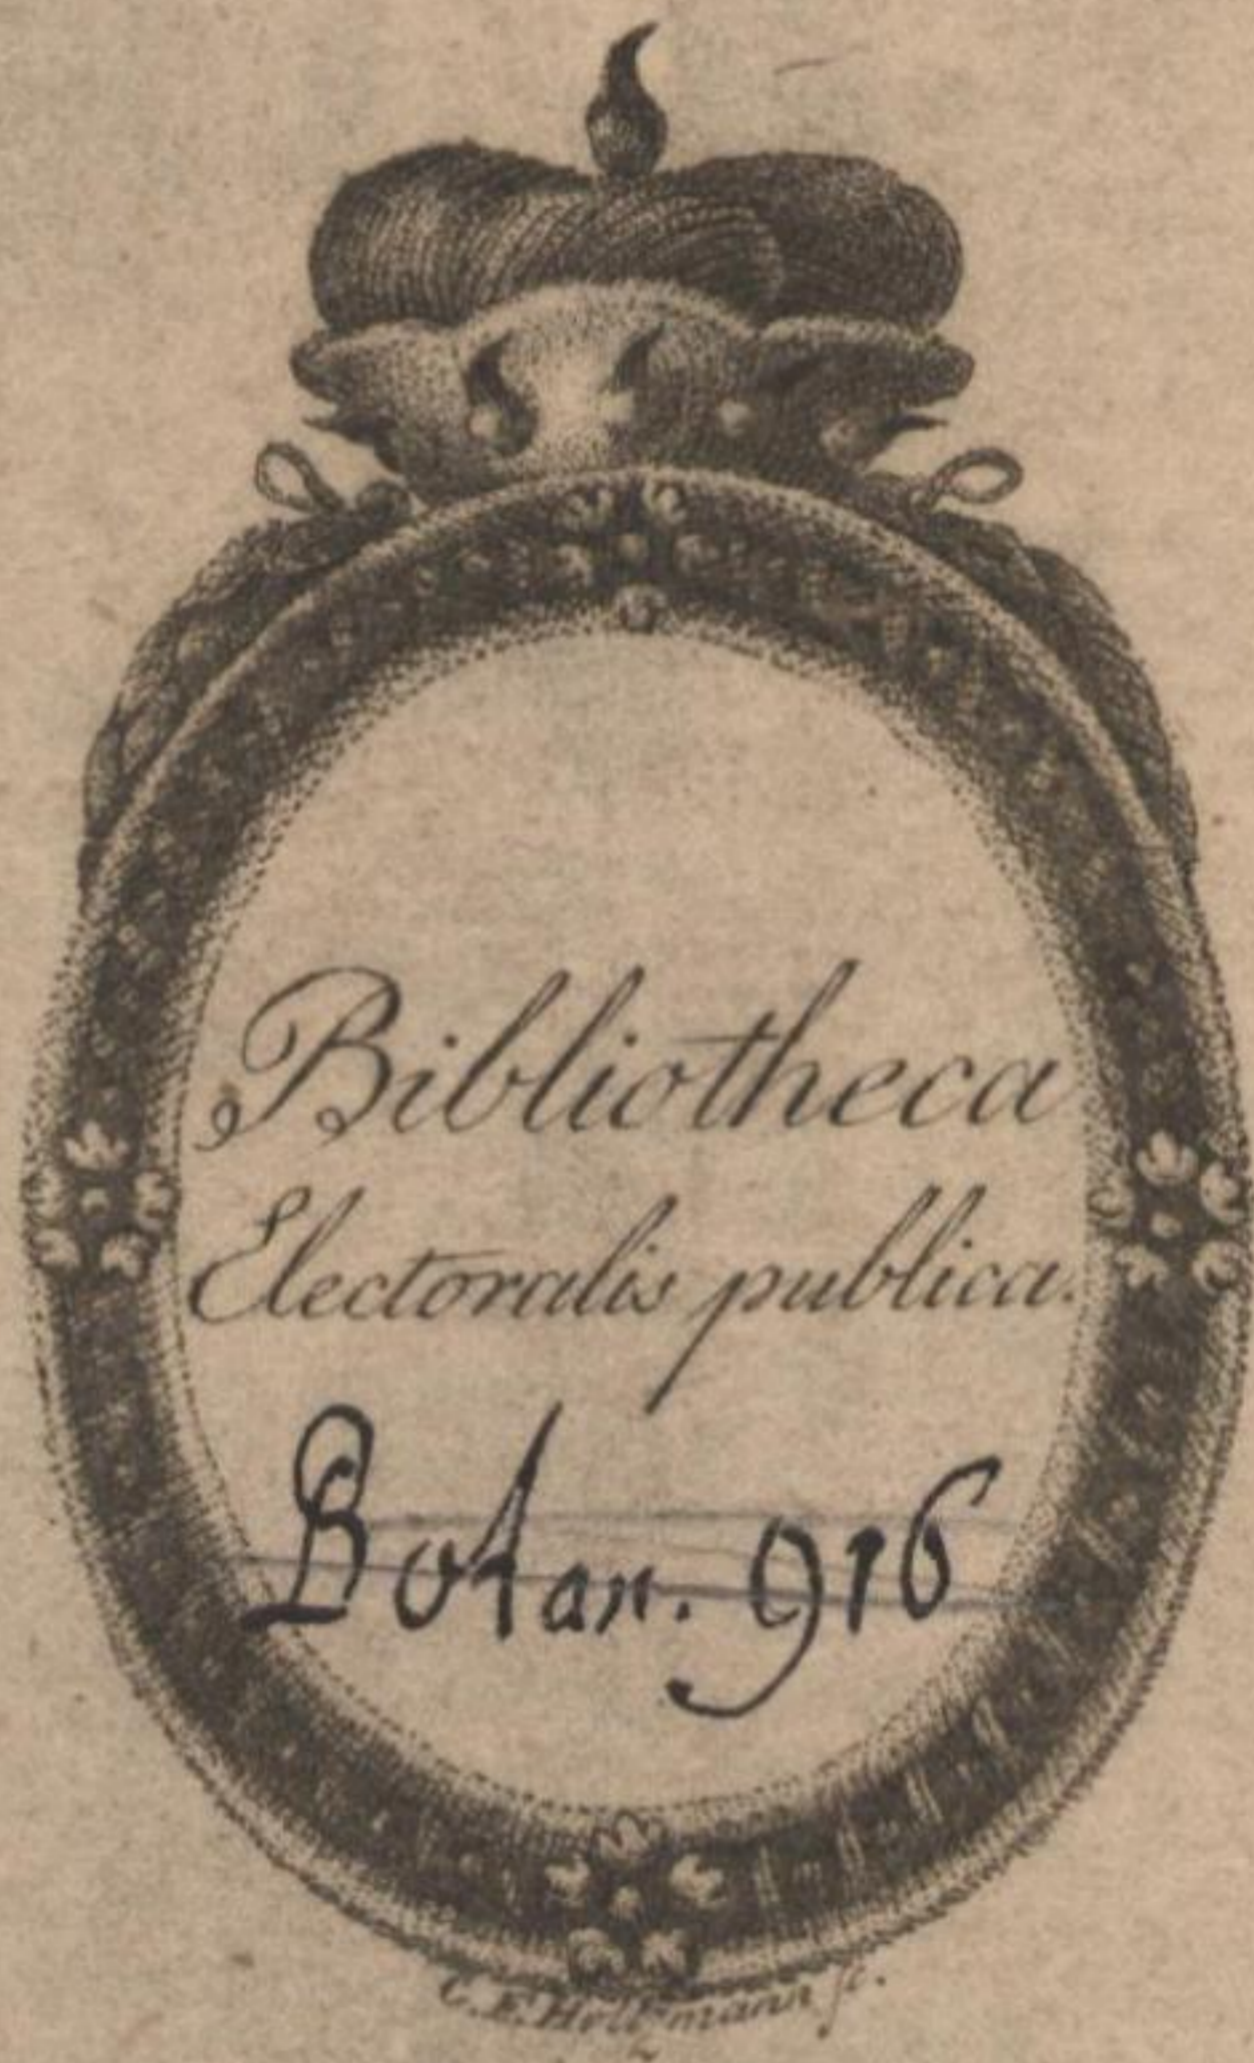 Bibliotheca
Electoralis publica.
Botan. 916
C. F. Holtzmann sc.